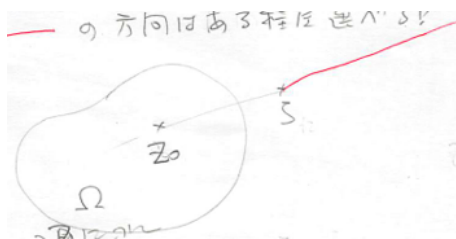 の方向はある程度選べる!
ζ
Z₀
Ω